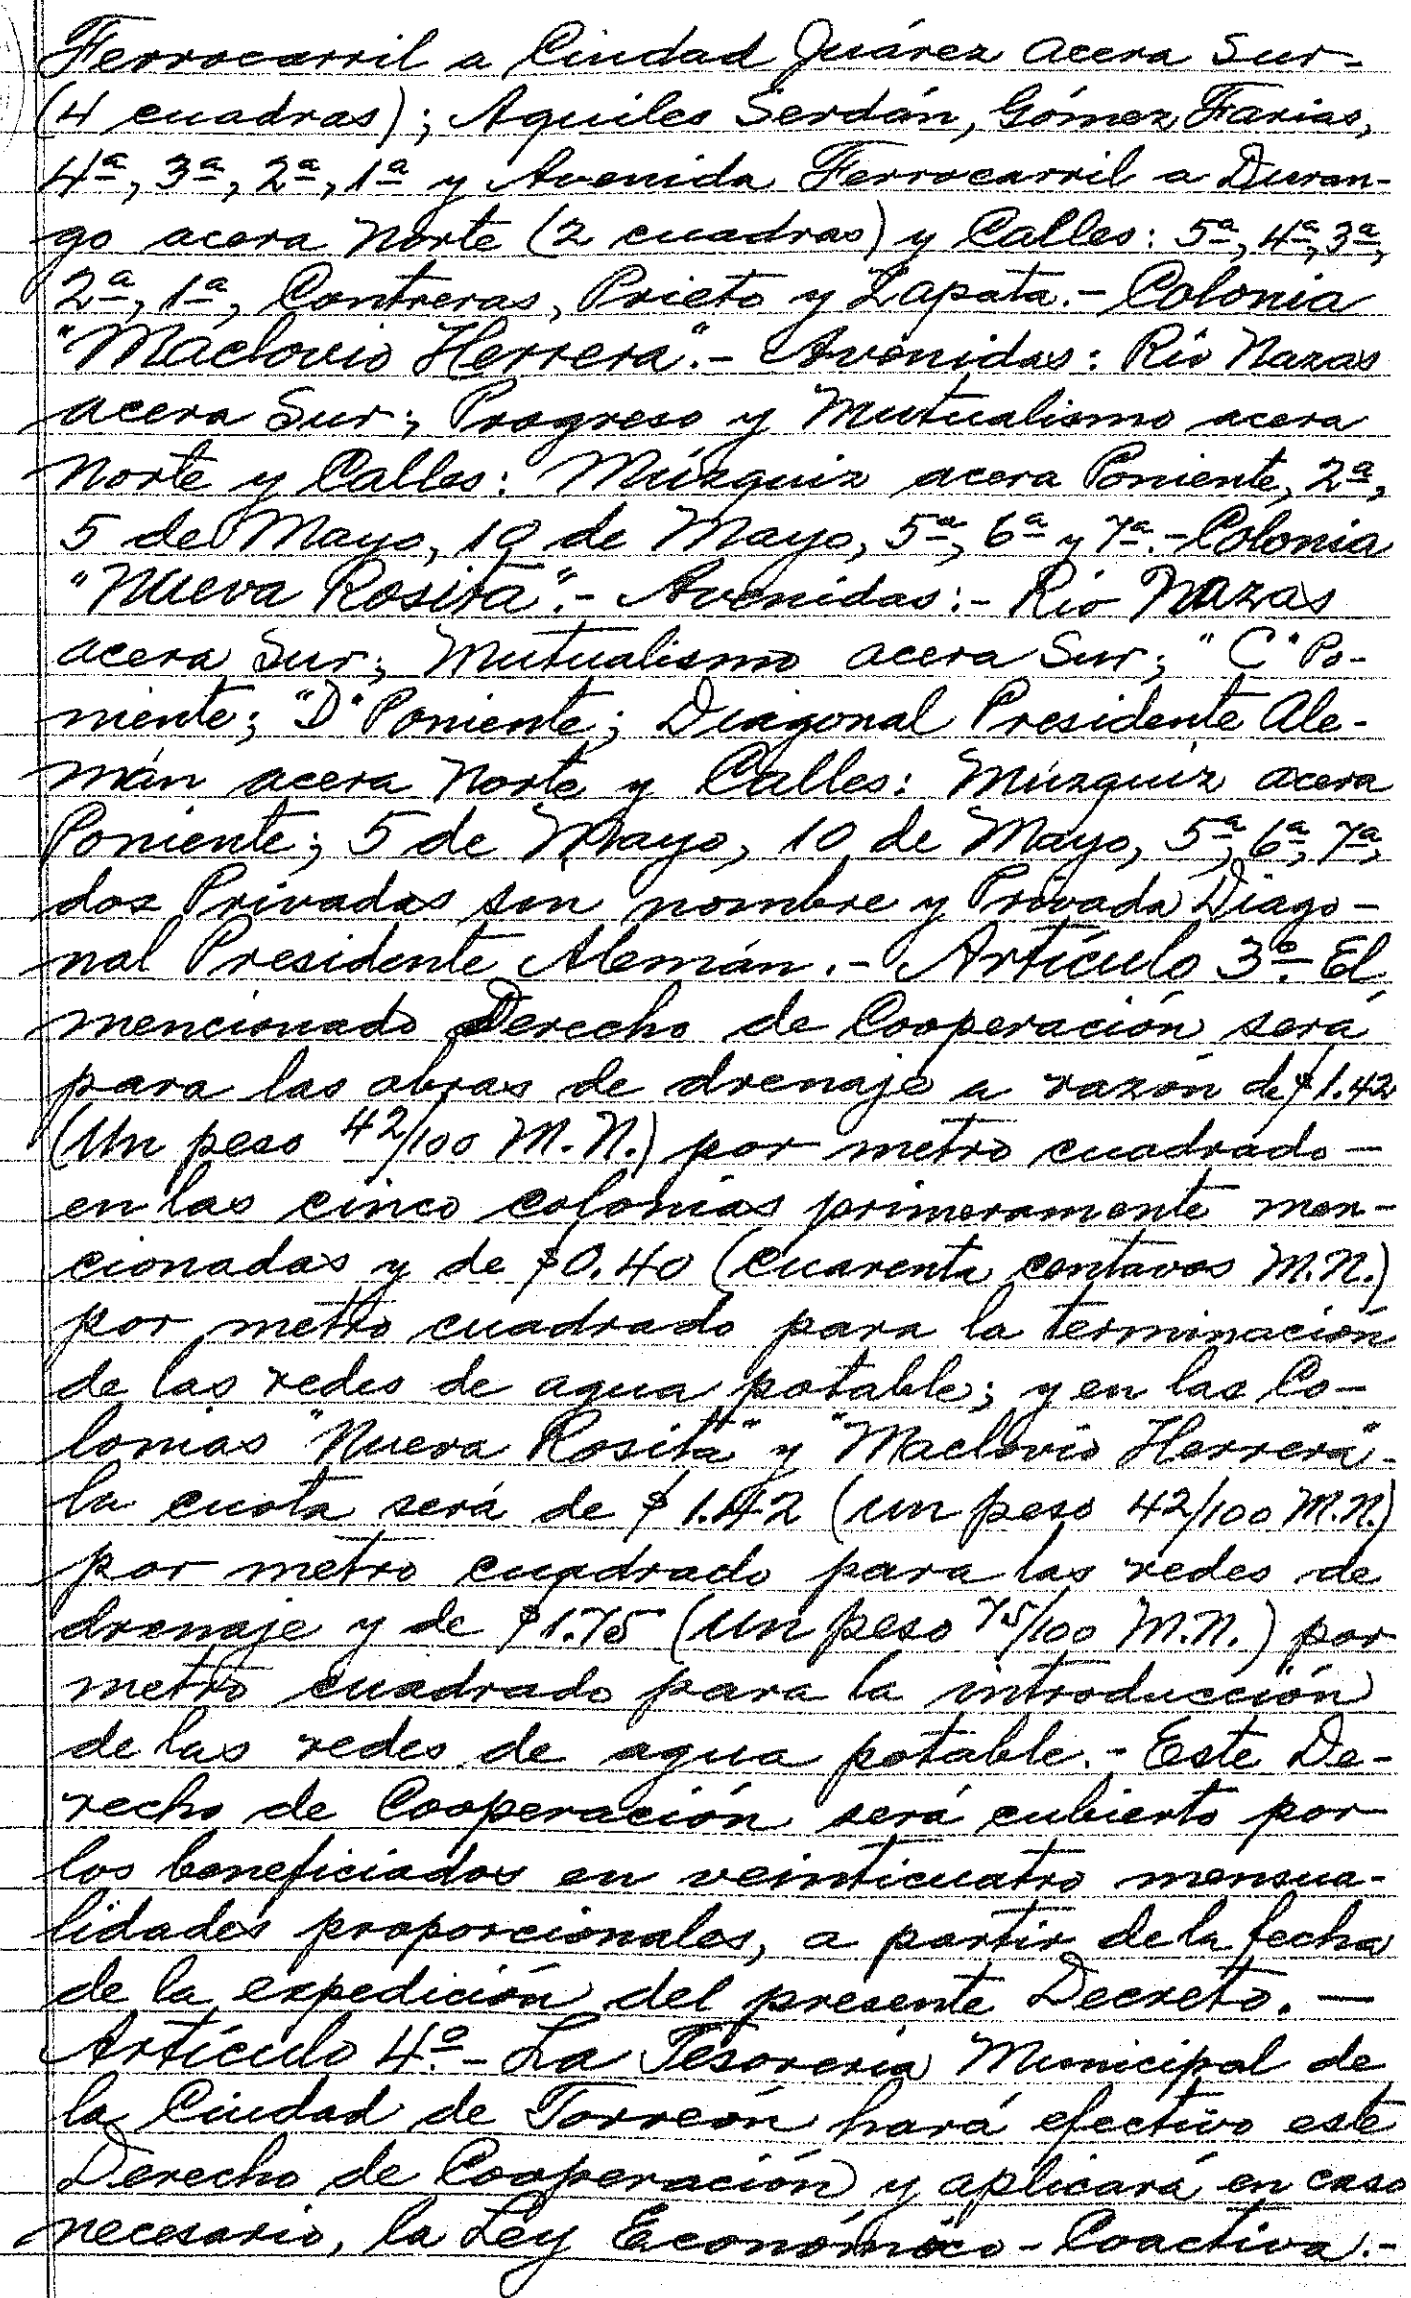 Ferrocarril a Ciudad Juárez acera Sur-
(4 cuadras); Aquiles Serdán, Gómez Farias,
4ª, 3ª, 2ª, 1ª y Avenida Ferrocarril a Duran-
go acera Norte (2 cuadras) y Calles: 5ª, 4ª, 3ª,
2ª, 1ª, Contreras, Prieto y Zapata.- Colonia
"Maclovio Herrera".- Avenidas: Río Nazas
acera Sur; Progreso y Mutualismo acera
Norte y Calles: Múzquiz acera Poniente, 2ª,
5 de Mayo, 10 de Mayo, 5ª, 6ª y 7ª.- Colonia
"Nueva Rosita".- Avenidas:- Río Nazas
acera Sur; Mutualismo acera Sur; "C" Po-
niente; "D" Poniente; Diagonal Presidente Ale-
mán acera Norte y Calles: Múzquiz acera
Poniente; 5 de Mayo, 10 de Mayo, 5ª, 6ª, 7ª,
dos Privadas sin nombre y Privada Diago-
nal Presidente Alemán.- Artículo 3º.- El
mencionado Derecho de Cooperación será
para las obras de drenaje a razón de $1.42
(Un peso 42/100 M.N.) por metro cuadrado-
en las cinco colonias primeramente men-
cionadas y de $0.40 (cuarenta centavos M.N.)
por metro cuadrado para la terminación
de las redes de agua potable; y en las Co-
lonias "Nueva Rosita" y "Maclovio Herrera"-
la cuota será de $1.42 (un peso 42/100 M.N.)
por metro cuadrado para las redes de
drenaje y de $1.75 (Un peso 75/100 M.N.) por
metro cuadrado para la introducción
de las redes de agua potable.- Este De-
recho de Cooperación será cubierto por
los beneficiados en veinticuatro mensua-
lidades proporcionales, a partir de la fecha
de la expedición del presente Decreto.-
Artículo 4º.- La Tesorería Municipal de
la Ciudad de Torreón hará efectivo este
Derecho de Cooperación y aplicará en caso
necesario, la Ley Económico-Coactiva.-